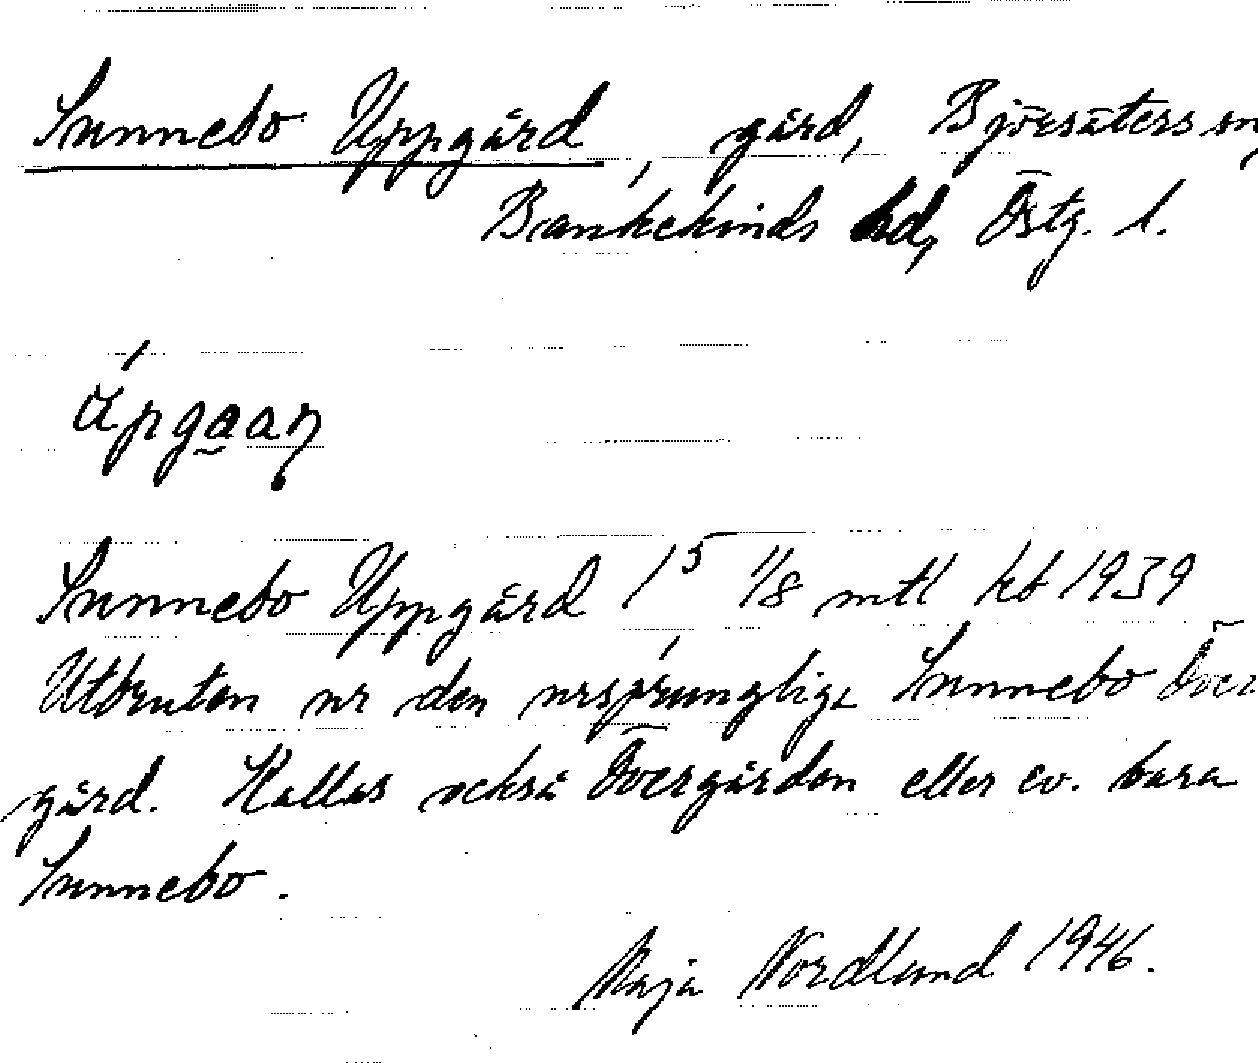 Sunnebo Uppgård, gård, Björsäters sn,
Bankekinds hd, Östg. l.
Sunnebo Uppgård 1⁵ 1/8 mtl kb 1939
Utbruten ur den ursprunglige Sunnebo Över
gård. Kallas också Övergården eller ev. bara
Sunnebo.
Maja Nordlund 1946.